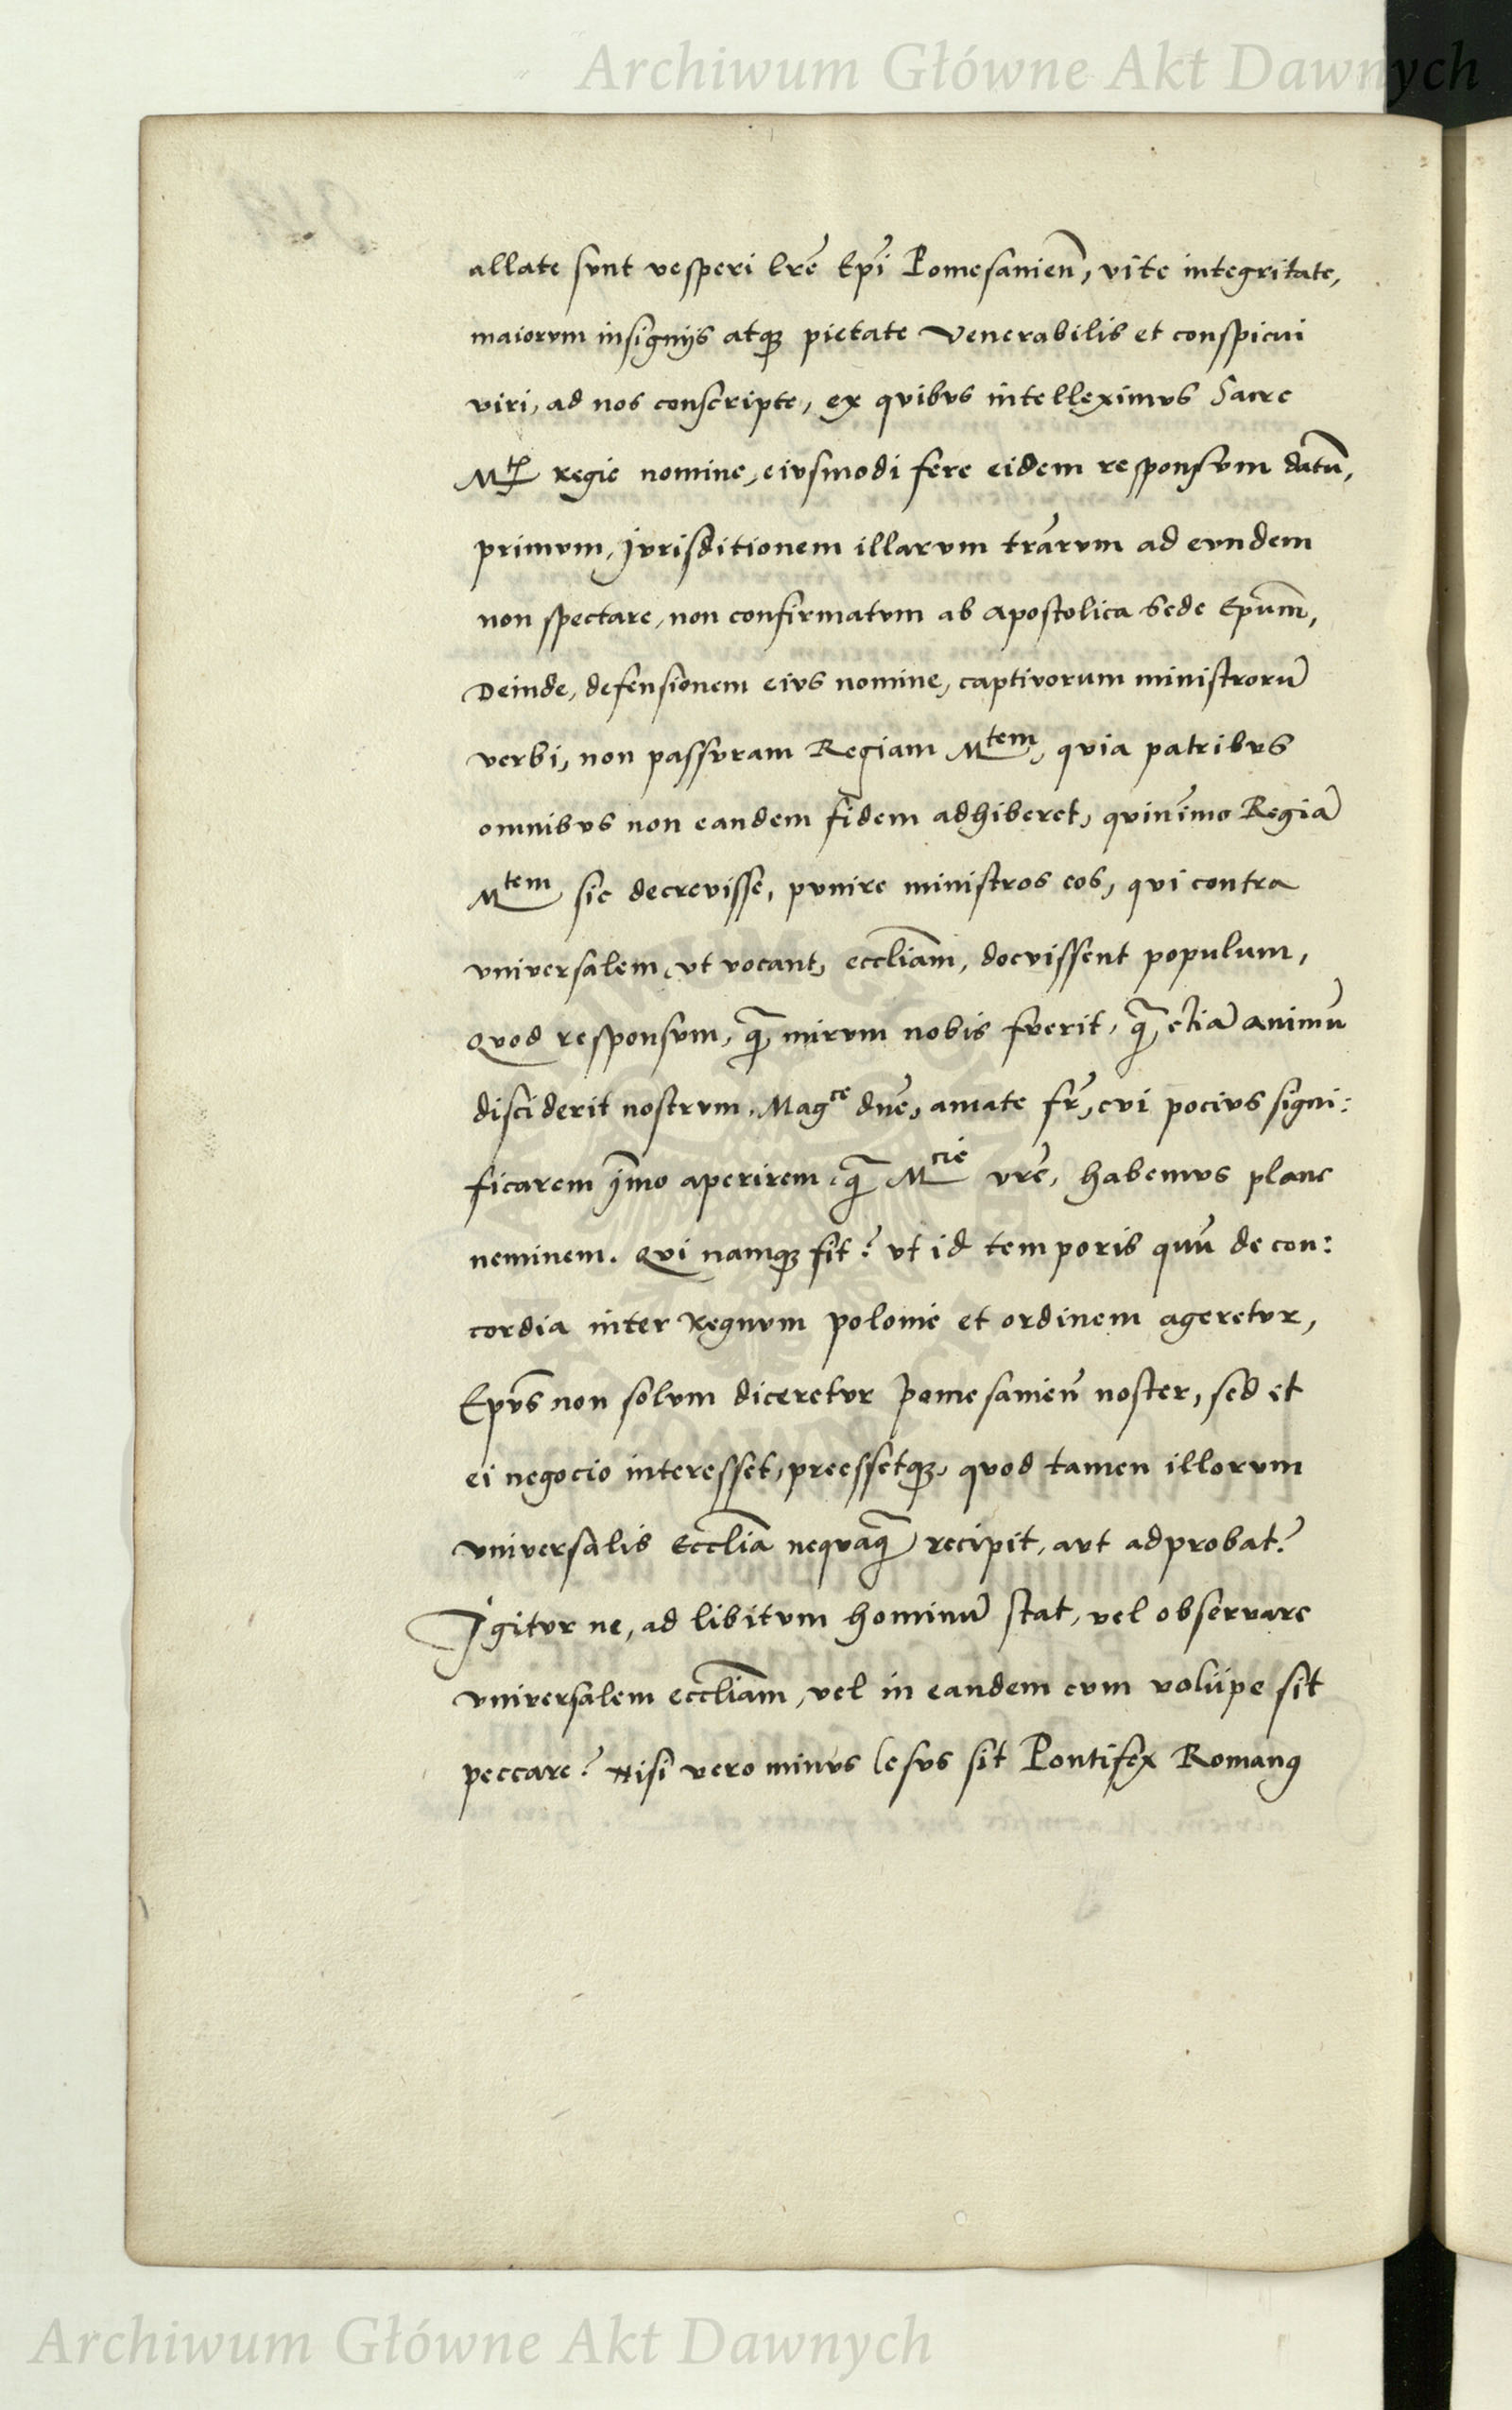 Archiwum Główne Akt Dawnych
allate sunt vesperi lrẽ Epĩ Pomesanieñ, vite integritate,
maiorvm insignijs atqꝫ pietate Venerabilis et conspicui
viri, ad nos conscripte, ex qvibvs intelleximvs Sacre
Mtꝭ regie nomine, eivsmodi fere eidem responsvm datũ,
primvm, Jvrisditionem illarvm trãrvm ad evndem
non spectare, non confirmatvm ab apostolica sede Epum̃,
Deinde, defensionem eivs nomine, captivorum ministrorũ
verbi, non passvram Regiam Mtem, qvia patribvs
omnibvs non eandem fidem adhiberet, qvinĩmo Regiã
Mtem sic decrevisse, pvnire ministros eos, qvi contra
vniversalem, vt vocant, eccliam̃, docvissent populum,
Qvod responsvm, q̃ mirvm nobis fverit, q̃ etiã animũ
disciderit nostrvm. Magce dnẽ, amate fr̃, cvi pocivs signi:
ficarem ỹmo aperirem, q̃ Mcie vrẽ, habemvs plane
neminem. Qvi namqꝫ fit? vt id temporis quũ de con:
cordia inter Regnvm polonie et ordinem ageretvr,
Epṽs non solvm diceretvr Pomesanieñ noster, sed et
ei negocio interesset, preessetqꝫ, qvod tamen illorvm
vniversalis Ecclia̅ neqvaq̃ recipit, avt adprobat?
Igitvr ne, ad libitvm hominũ stat, vel observare
vniversalem eccliam̃, vel in eandem cvm volupe sit
peccare? Nisi vero minvs lesvs sit Pontifex Romanꝰ
Archiwum Główne Akt Dawnych